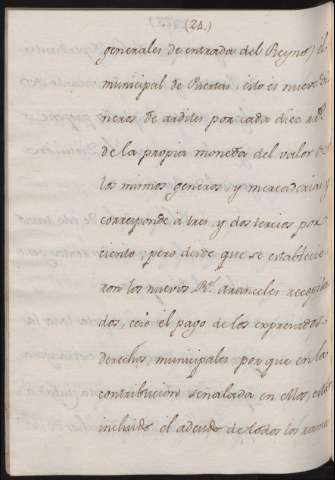 (24.)
generales de entrada del Reyno, el
municipal de Puertas, esto es nueve di-
neros de ardites por cada diez
de la propia moneda del valor de
los mismos generos, y mercaderias, y
corresponde à tres, y dos tercios por
ciento, pero desde que se establecie-
ron los nuevos Rs. aranceles recopila-
dos, cesó el pago de los expresados
derechos, municipales por que en la
contribucion señalada en ellos, està
incluido el adeudo de todos los